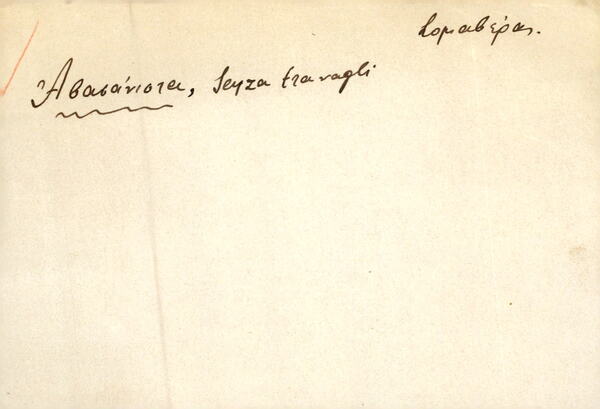 Σομαβέρας.
Ἀβασάνιστα, senza travagli